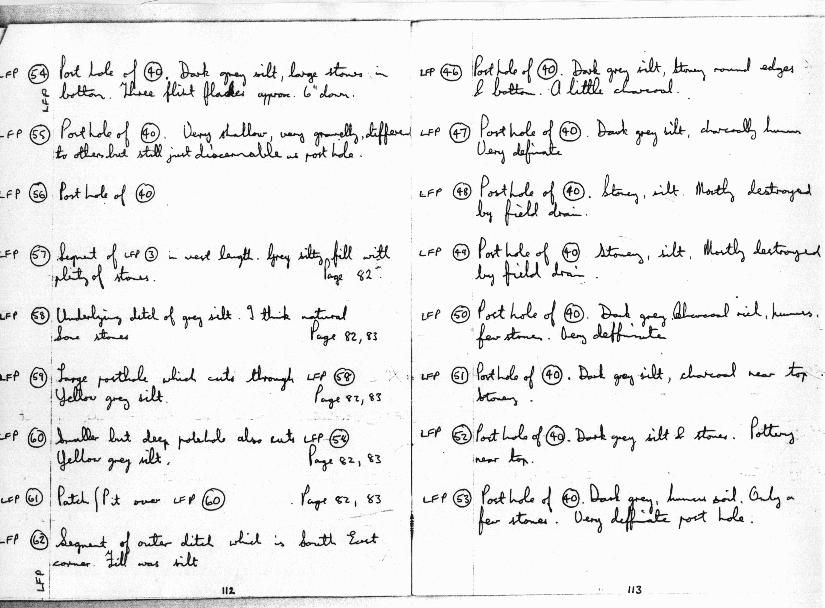 LFP (54) Post hole of (40). Dark grey silt, large stones in
LFP bottom. Three flint flakes approx. 6" down.
LFP (55) Post hole of (40). Very shallow, very gravelly, different
to others but still just discernable as post hole.
LFP (56) Post hole of (40)
LFP (57) Segment of LFP (3) in west length. Grey silty fill with
plenty of stones. Page 82
LFP (58) Underlying ditch of grey silt. I think natural
Some stones Page 82, 83
LFP (59) Large posthole which cuts through LFP (58)
Yellow grey silt. Page 82, 83
LFP (60) Smaller but deep posthole also cuts LFP (58)
Yellow grey silt. Page 82, 83
LFP (61) Patch/Pit over LFP (60) Page 82, 83
LFP (62) Segment of outer ditch which is South East
LFP corner. Fill was silt
112
LFP (46) Post hole of (40). Dark grey silt, Stoney round edges
& bottom. A little charcoal.
LFP (47) Post hole of (40). Dark grey silt, charcoally humus
Very definate
LFP (48) Post hole of (40). Stoney, silt. Mostly destroyed
by field drain.
LFP (49) Post hole of (40) Stoney, silt, Mostly destroyed
by field drain.
LFP (50) Post hole of (40). Dark grey Charcoal soil, humus.
few stones. Very deffinate
LFP (51) Post hole of (40). Dark grey silt, charcoal near top
Stoney.
LFP (52) Post hole of (40). Dark grey silt & stones. Pottery
near top.
LFP (53) Post hole of (40). Dark grey, humus soil. Only a
few stones. Very deffinate post hole.
113